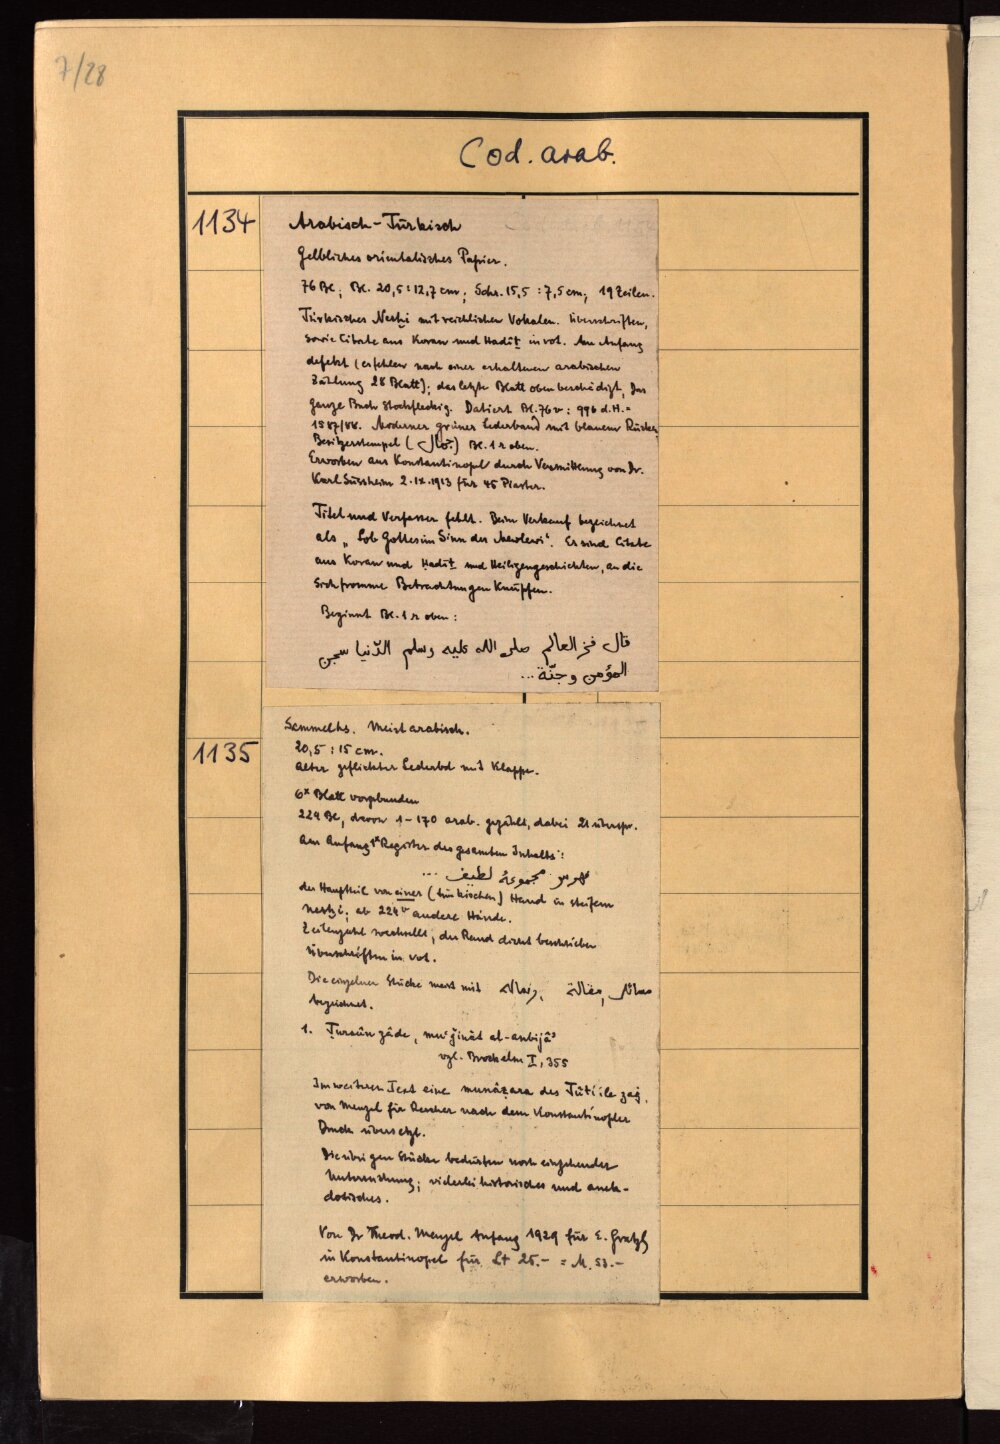 7/28
Cod. arab.
1134
Arabisch-Türkisch
Gelbliches orientalisches Papier.
76 Bl.; Bl. 20,5:12,7 cm; Schr. 15,5:7,5 cm; 19 Zeilen.
Türkisches Nesḫi mit reichlichen Vokalen. Überschriften,
sowie Citate aus Koran und Hadiṯ in rot. Am Anfang
defekt (es fehlen nach einer erhaltenen arabischen
Zählung 28 Blatt); das letzte Blatt oben beschädigt, das
ganze Buch stockfleckig. Datiert Bl. 76v: 996 d.H. =
1587/88. Moderner grüner Lederband mit blauem Rücken,
Besitzerstempel (جمال) Bl. 1 r oben.
Erworben aus Konstantinopel durch Vermittlung von Dr.
Karl Süssheim 2.IX.1913 für 45 Piaster.
Titel und Verfasser fehlt. Beim Verkauf bezeichnet
als „Lob Gottes im Sinn der Mewlewi“. Es sind Citate
aus Koran und Ḥadiṯ und Heiligengeschichten, an die
sich fromme Betrachtungen knüpfen.
Beginnt Bl. 1 r oben:
قال فخر العالم صلى الله عليه وسلم الدّنيا سجن
المؤمن وجنّة...
1135
Sammelhs. Meist arabisch.
20,5:15 cm.
Alter geflickter Lederbd mit Klappe.
6ˣ Blatt vorgebunden
224 Bl, davon 1-170 arab. gezählt, dabei 21 überspr.
Am Anfang 1ˣ Register des gesamten Inhalts:
فهرس مجموعهٔ لطيف ...
der Hauptteil von einer (türkischen) Hand in steifem
Nesḫi; ab 224v andere Hände.
Zeilenzahl wechselt, der Rand dient beschrieben
Überschriften in rot.
Die einzelnen Stücke meist mit رساله, مقالة, مسائل
bezeichnet.
1. Ṭursûn zâde, mu'ǧizât al-anbijâ'
vgl. Brockelm I, 355
Im weiteren Text eine munâẓara des Ṭûṭî ile zaġ,
von Menzel für Rescher nach dem Konstantinopler
Druck übersetzt.
Die übrigen Stücke bedürfen noch eingehender
Untersuchung; vielerlei historisches und anek-
dotisches.
Von Dr Theod. Menzel Anfang 1929 für E. Gratzl
in Konstantinopel für Lt 25.- = M. 53.-
erworben.